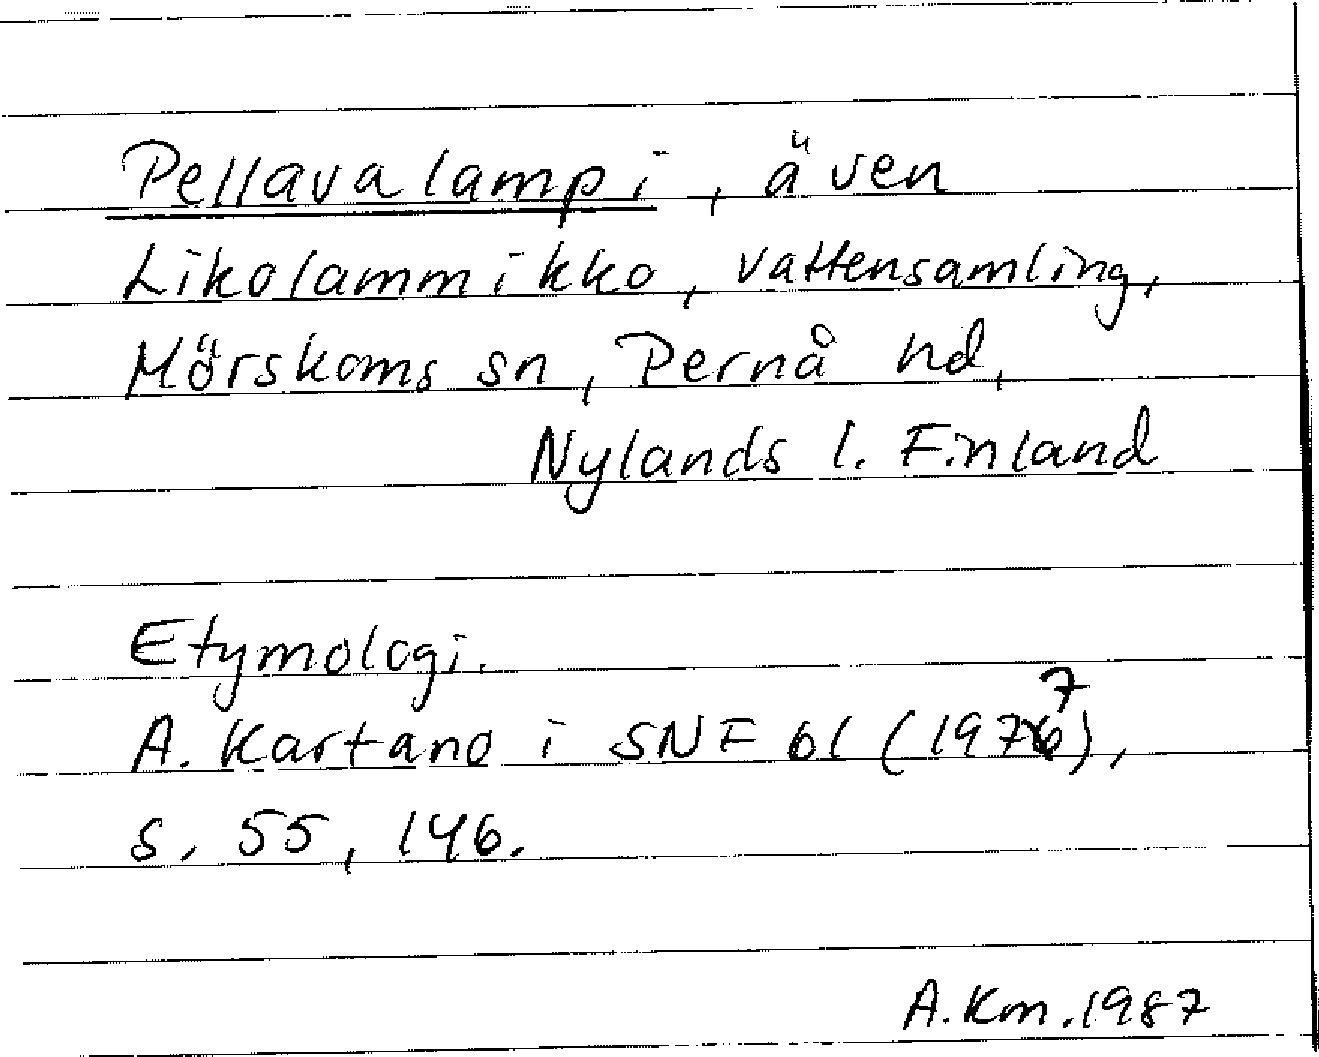 Pellavalampi, även
Likolammikko, vattensamling,
Mörskoms sn, Pernå hd,
Nylands l. Finland
Etymologi.
A. Kartano i SNF 61 (1977),
s. 55, 146.
A. Km. 1987